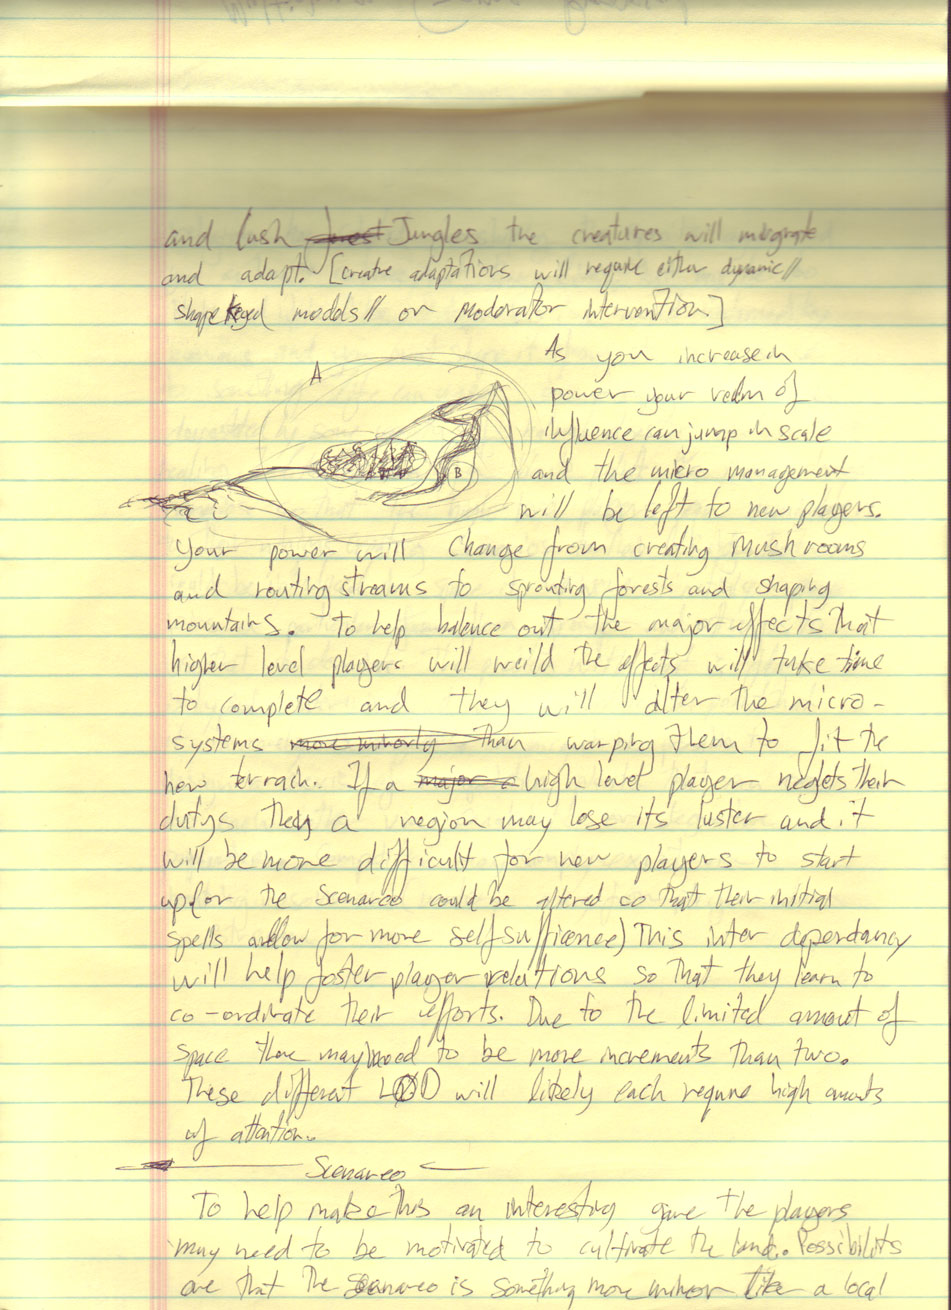 and lush forest Jungles the creatures will migrate
and adapt. [creative adaptations will require either dynamic//
shape keyed modds// or Moderator intervention.]
A
As you increase in
power your relm of
influence can jump in scale
B
and the micro management
will be left to new players.
Your power will change from creating mushrooms
and routing streams to sprouting forests and shaping
mountains. To help balence out the major effects that
higher level players will weild the effects will take time
to complete and they will alter the micro-
systems more minorly than warping them to fit the
new terrain. If a major high level player neglets their
dutys then a region may lose its luster and it
will be more difficult for new players to start
up (or the Scenareo could be altered so that their initial
spells allow for more self sufficence) This inter dependancy
will help foster player relations so that they learn to
co-ordinate their efforts. Due to the limited amount of
space there may need to be more increments than two.
These different LOD will likely each require high amounts
of attention.
Scenareo
To help make this an interesting game the players
may need to be motivated to cultivate the land. Possibilits
are that the Scenareo is something more minor like a local